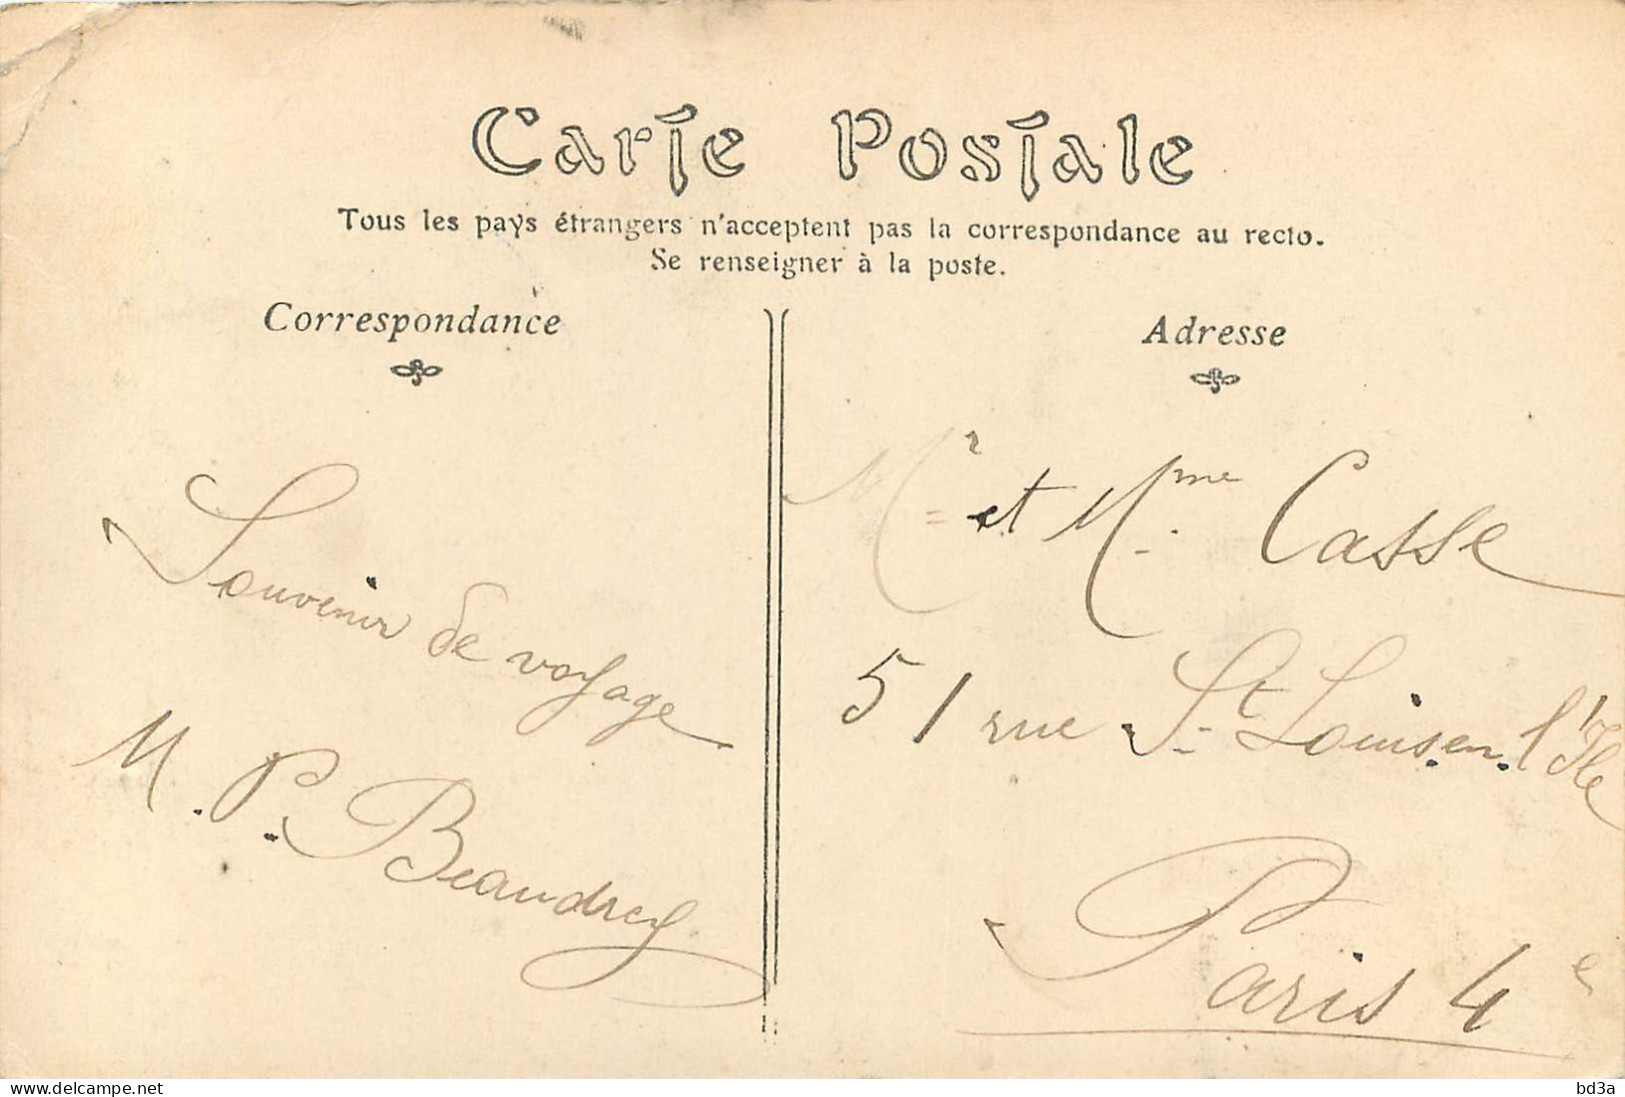 Carte Postale
Tous les pays étrangers n'acceptent pas la correspondance au recto.
Se renseigner à la poste.
Correspondance
Souvenir de voyage
M. P. Beaudrey
Adresse
Mr et Mme Casse
51 rue St Louis.en.l'Ile
Paris 4e
www.delcampe.net
bd3a